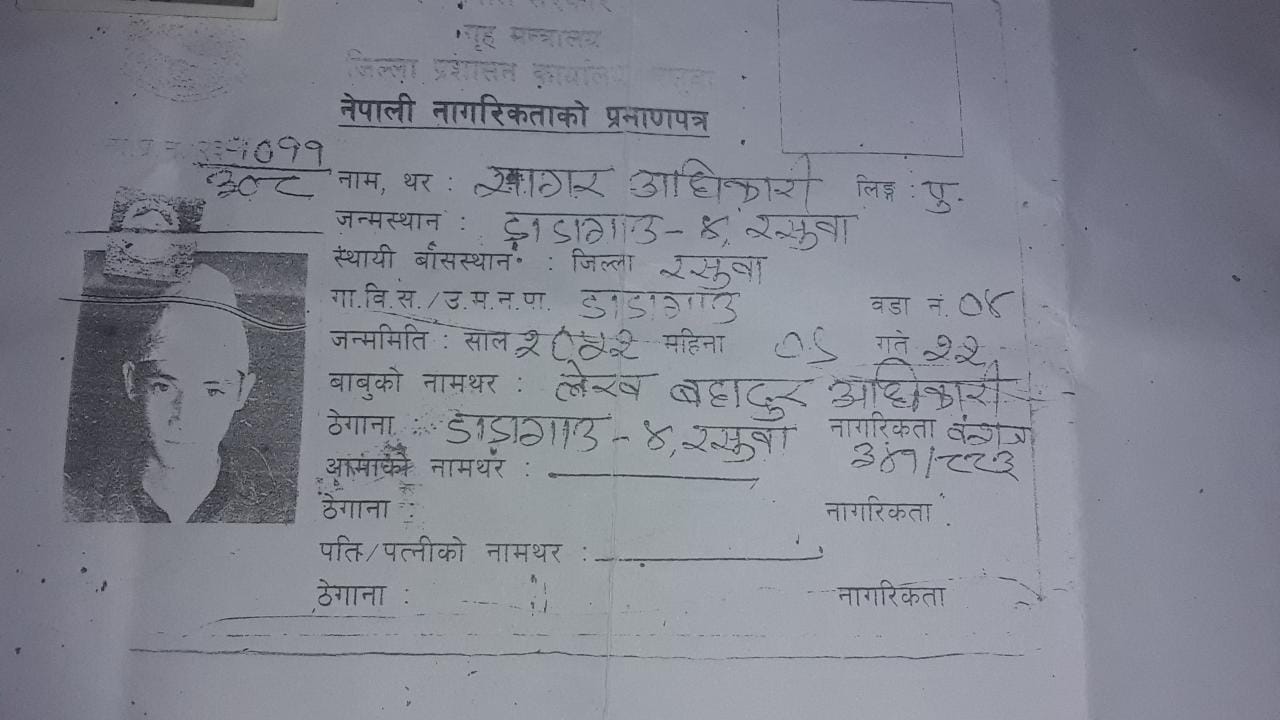 गृह मन्त्रालय
जिल्ला प्रशासन कार्यालय
नेपाली नागरिकताको प्रमाणपत्र
१०११
३०८
नाम, थर : सागर अधिकारी लिङ्ग : पु.
जन्मस्थान : डाडागाउ - ४, रसुवा
स्थायी बासस्थान : जिल्ला रसुवा
गा.वि.स./उ.म.न.पा. डाडागाउ वडा नं. ०४
जन्ममिति : साल महिना ०५ गते २२
बाबुको नामथर : लेख बहादुर अधिकारी
ठेगाना : डाडागाउ - ४, रसुवा नागरिकता वंशज
३४१/८८३
आमाको नामथर :
ठेगाना : नागरिकता :
पति/पत्नीको नामथर :
ठेगाना : नागरिकता